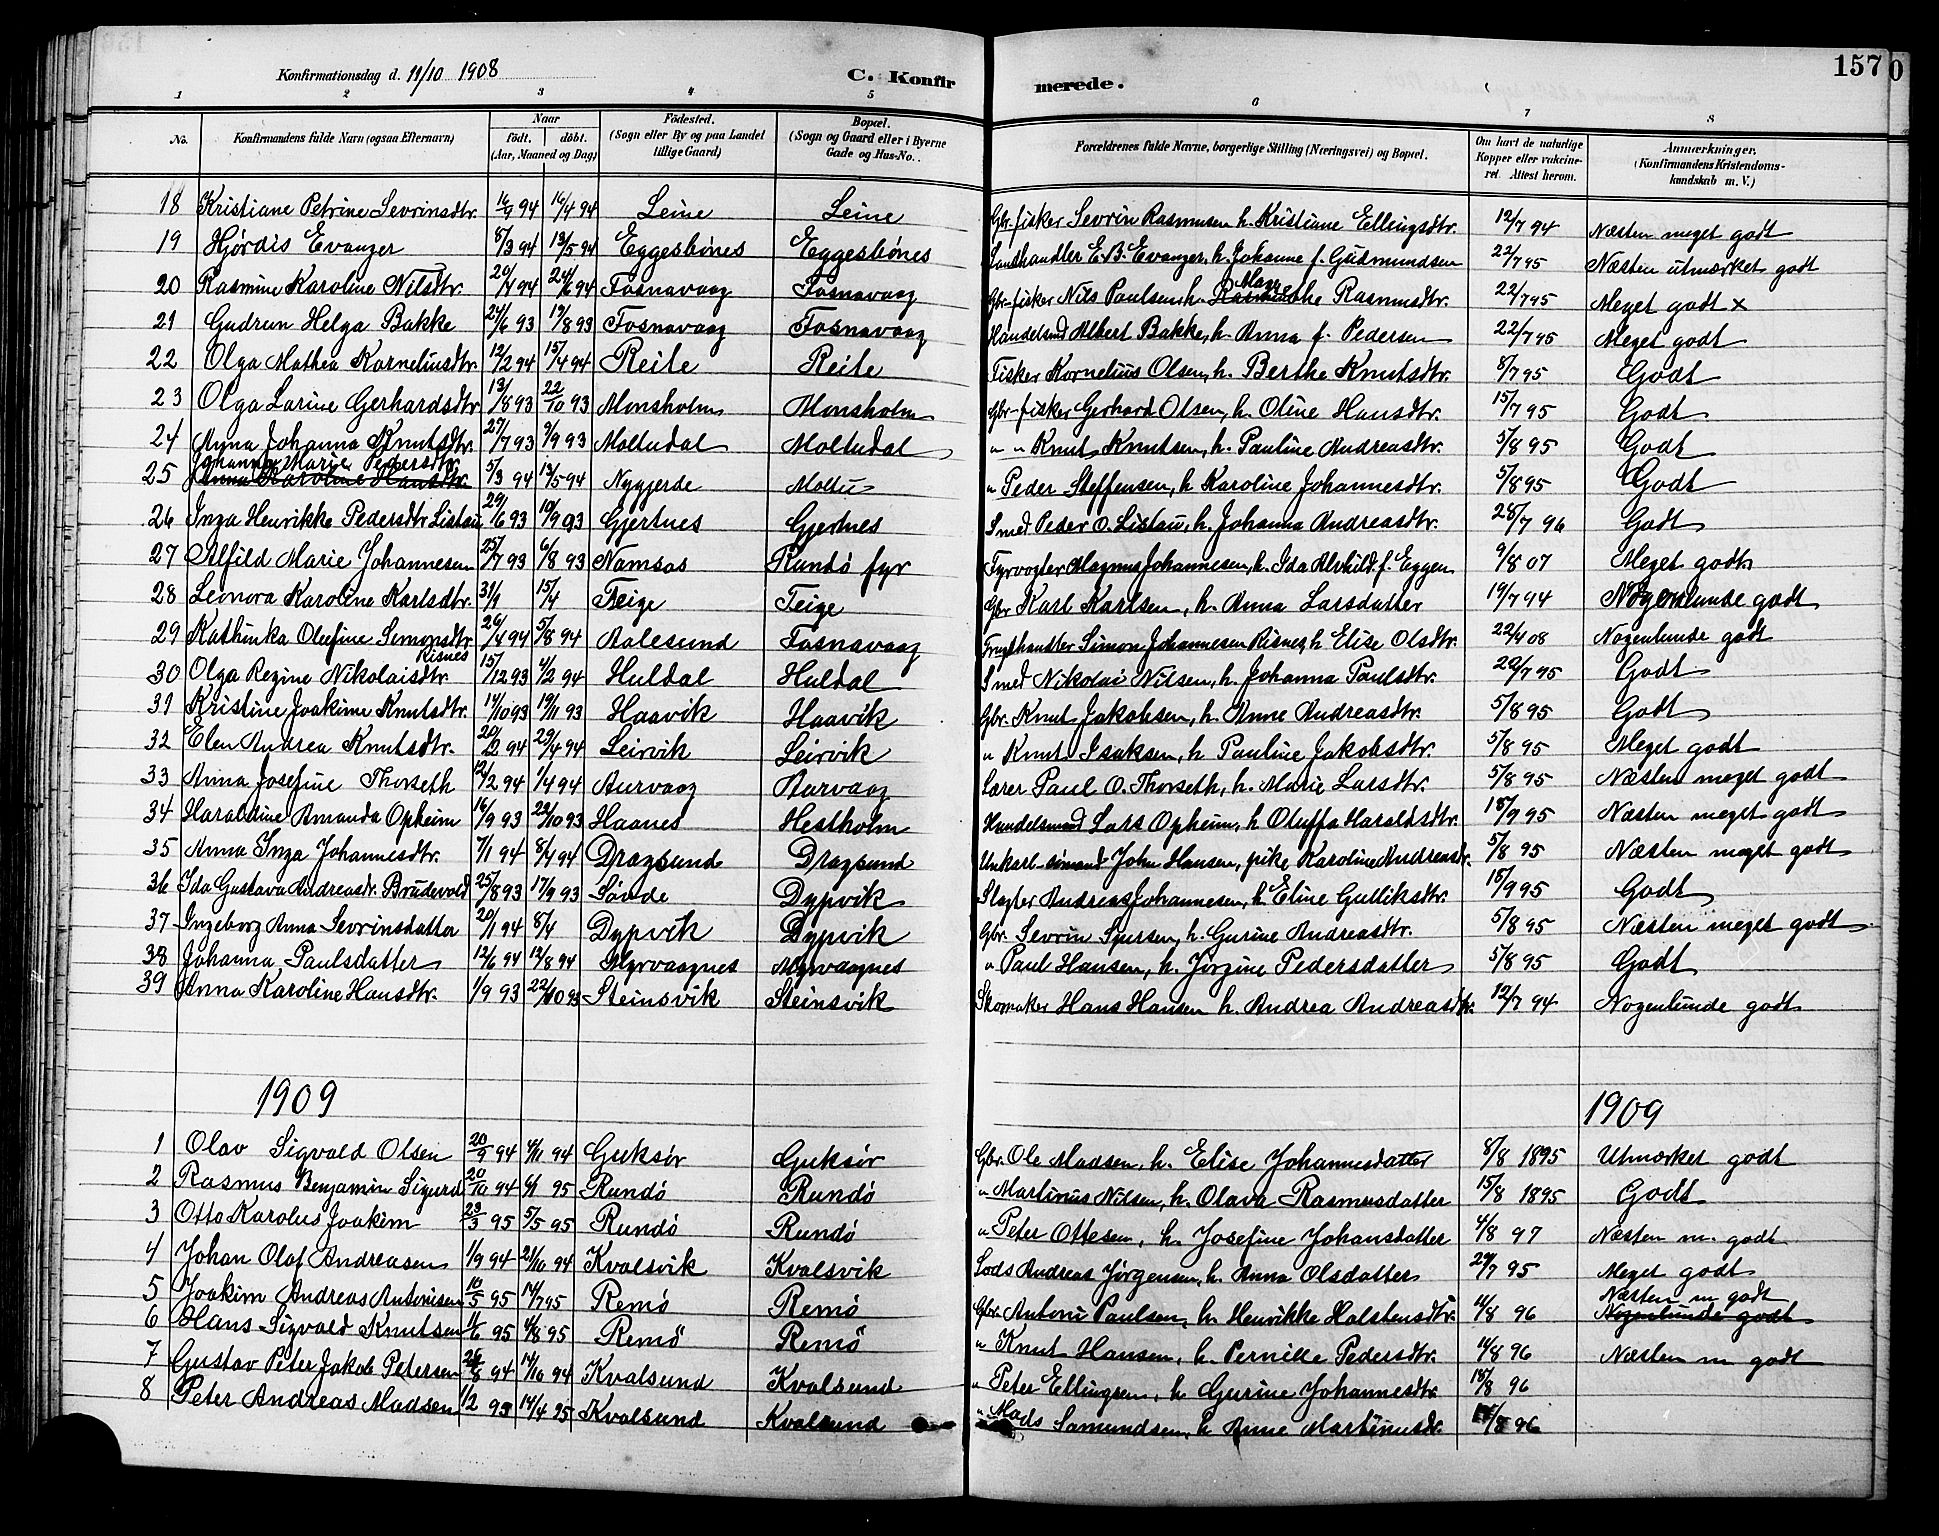 157
Konfirmationsdag d. 11/10 1908
C. Konfirmerede.
1 2 3 4 5 6 7 8
No. Konfirmandens fulde Navn (ogsaa Efternavn) Naar födt. döbt. (Aar, Maaned og Dag) Födested. (Sogn eller By og paa Landet tillige Gaard) Bopæl. (Sogn og Gaard eller i Byerne Gade og Hus-No. Forældrenes fulde Navne, borgerlige Stilling (Næringsvei) og Bopæl. Om havt de naturlige Kopper eller vakcineret. Attest herom. Anmærkninger. (Konfirmandens Kristendomskundskab m. V.)
18 Kristiane Petrine Sevrinsdtr. 94 16/4 94 Leine Leine Gbr. fisker Sevrin Rasmusen h. Kristiane Ellingsdtr. 12/7 94 Næsten meget godt
19 Hjørdis Evanger 8/3 94 13/5 94 Eggesbönes Eggesbönes Landhandler E. B. Evanger, h. Johanne f. Gudmundsen 22/7 95 Næsten utmærket godt
20 Rasmine Karoline Nilsdtr. 20/4 94 24/6 94 Fosnavaag Fosnavaag Gbr-fisker Nils Paulsen h. Rasmusdtr. 22/7 95 Meget godt x
21 Gudrun Helga Bakke 24/6 93 19/8 93 Fosnavaag Fosnavaag Handelsmd Albert Bakke, h. Anna f. Pedersen 22/7 95 Meget godt
22 Olga Mathea Korneliusdtr. 12/2 94 15/4 94 Reite Reite Fisker Kornelius Olsen, h. Berthe Knutsdtr. 8/7 95 Godt
23 Olga Larine Gerhardsdtr 13/8 93 22/10 93 Monsholm Monsholm Gbr-fisker Gerhard Olsen, h. Oline Hansdtr. 15/7 95 Godt
24 Anna Johanna Knutsdtr. 27/7 93 9/9 93 Moltudal Moltudal " " Knut Knutsen, h. Pauline Andreasdtr. 5/8 95 Godt
Johanna Marie Pedersdtr.
25 Anna Karoline Hansdtr. 5/3 94 13/5 94 Nygjerde Moltu " Peder Steffensen, h Karoline Johannesdtr. 5/8 95 Godt
26 Inga Henrikke Pedersdtr Listau 29/6 93 10/9 93 Gjertnes Gjertnes Smed Peder O. Listau, h. Johanna Andreasdtr. 28/7 96 Godt
27 Alfild Marie Johannesen 25/7 93 6/8 93 Namsos Rundö fyr Fyrvogter Magnus Johannesen, h. Ida Alvhild f. Eggen 9/8 07 Meget godt
28 Leonora Karoline Karlsdtr. 31/1 15/4 Teige Teige Gbr Karl Karlsen, h. Anna Larsdatter 19/7 94 Nogenlunde godt
29 Kathinka Olufine Simonsdtr Risnes 26/4 94 5/8 94 Aalesund Fosnavaag Frugthandler Simon Johannesen Risnes, h Elise Olsdtr. 22/4 08 Nogenlunde godt
30 Olga Regine Nikolaisdtr. 15/12 93 4/2 94 Huldal Huldal Smed Nikolai Nilsen, h. Johanna Paulsdtr. 29/7 95 Godt
31 Kristine Joakime Knutsdtr. 14/10 93 19/11 93 Haavik Haavik Gbr. Knut Jakobsen, h. Anne Andreasdtr. 5/8 95 Godt
32 Elen Andrea Knutsdtr. 94 29/4 94 Leirvik Leirvik " Knut Isaksen, h Pauline Jakobsdtr. 5/8 95 Meget godt
33 Anna Josefine Thorseth 12/2 94 1/4 94 Aurvaag Aurvaag Lærer Paul O. Thorseth, h. Marie Larsdtr. 5/8 95 Næsten meget godt
34 Haraldine Amanda Opheim 16/9 93 22/10 93 Haanes Hestholm Handelsmand Lars Opheim, h Oluffa Haraldsdtr. 18/9 95 Næsten meget godt
35 Anna Inga Johannesdtr. 7/1 94 8/4 94 Dragsund Dragsund Unkarl John Hansen, pike Karoline Andreasdtr. 5/8 95 Næsten meget godt
36 Ida Gustava Andreasdtr. Brudevold 25/8 93 17/9 93 Søvde Dypvik Slagter Andreas Johannesen, h. Eline Gulliksdtr. 15/9 95 Godt
37 Ingeborg Anna Sevrinsdatter 20/1 94 8/4 Dypvik Dypvik Gbr. Sevrin Sjursen, h. Gurine Andreasdtr. 5/8 95 Næsten meget godt
38 Johanna Paulsdatter 12/6 94 12/8 94 Myrvaagnes Myrvaagnes " Paul Hansen, h. Jørgine Pedersdatter 5/8 95 Godt
39 Anna Karoline Hansdtr. 1/9 93 22/10 93 Steinsvik Steinsvik Skomaker Hans Hansen h. Andrea Andreasdtr. 12/7 94 Nogenlunde godt
1909 1909
1 Olav Sigvald Olsen 20/9 94 4/11 94 Guksør Guksør Gbr. Ole Madsen, h. Elise Johannesdatter 8/8 1895 Utmærket godt
2 Rasmus Benjamin Sigurd 20/10 94 95 Rundö Rundö " Martinus Nilsen, h. Olava Rasmusdatter 15/8 1895 Godt
3 Otto Karolus Joakim 23/3 95 5/5 95 Rundö Rundö " Peter Ottesen, h. Josefine Johansdatter 4/8 97 Næsten m. godt
4 Johan Olaf Andreasen 1/9 94 21/10 94 Kvalsvik Kvalsvik Lods Andreas Jørgensen, h. Anna Olsdatter 29/7 95 Meget godt
Næsten m godt
5 Joakim Andreas Antonisen 10/5 95 14/7 95 Remö Remö Gbr. Antoni Paulsen, h. Henrikke Holstensdtr 11/8 96 Nogenlunde godt
6 Hans Sigvald Knutsen 95 4/8 95 Remö Remö " Knut Hansen, h. Pernille Pedersdtr. 11/8 96 Næsten m godt
7 Gustav Peter Jakob Petersen 94 14/10 94 Kvalsund Kvalsund " Peter Ellingsen, h Gurine Johannesdtr. 18/8 96
8 Peter Andreas Madsen 1/2 95 14/4 95 Kvalsund Kvalsund " Mads Samundsen, h Anne Martinusdr. 96